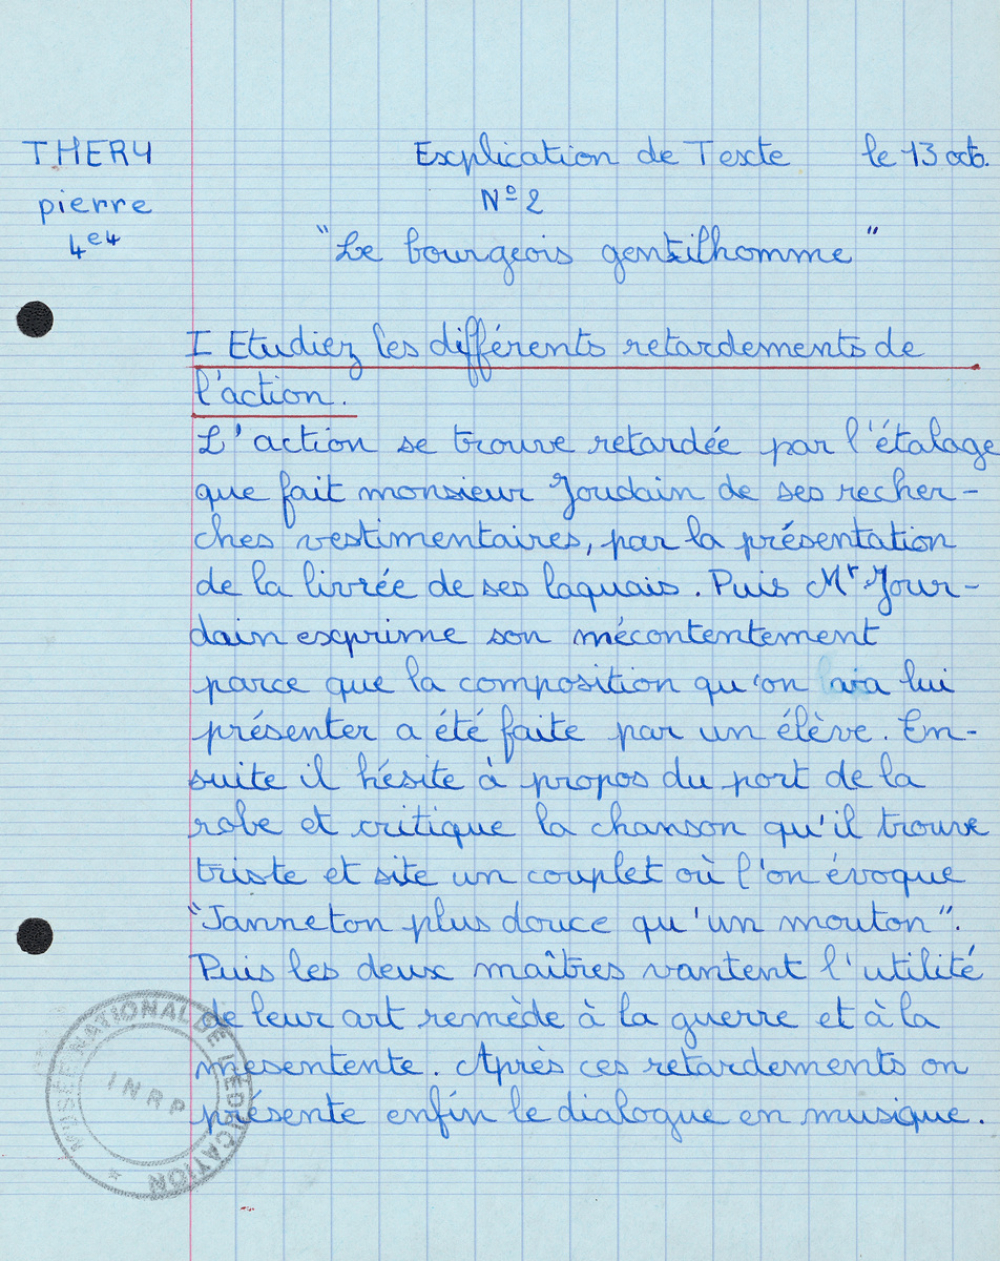 THERY
pierre
4e4
Explication de Texte le 13 octo.
Nº 2
"Le bourgeois gentilhomme"
I Etudiez les différents retardements de
l'action.
L'action se trouve retardée par l'étalage
que fait monsieur Joudain de ses recher-
ches vestimentaires, par la présentation
de la livrée de ses laquais. Puis Mr Jour-
dain exprime son mécontentement
parce que la composition qu'on va lui
présenter a été faite par un élève. En-
suite il hésite à propos du port de la
robe et critique la chanson qu'il trouve
triste et site un couplet où l'on évoque
"Janneton plus douce qu'un mouton".
Puis les deux maîtres vantent l'utilité
de leur art remède à la guerre et à la
mesentente. Après ces retardements on
présente enfin le dialogue en musique.
MUSÉE NATIONAL DE L'ÉDUCATION
INRP